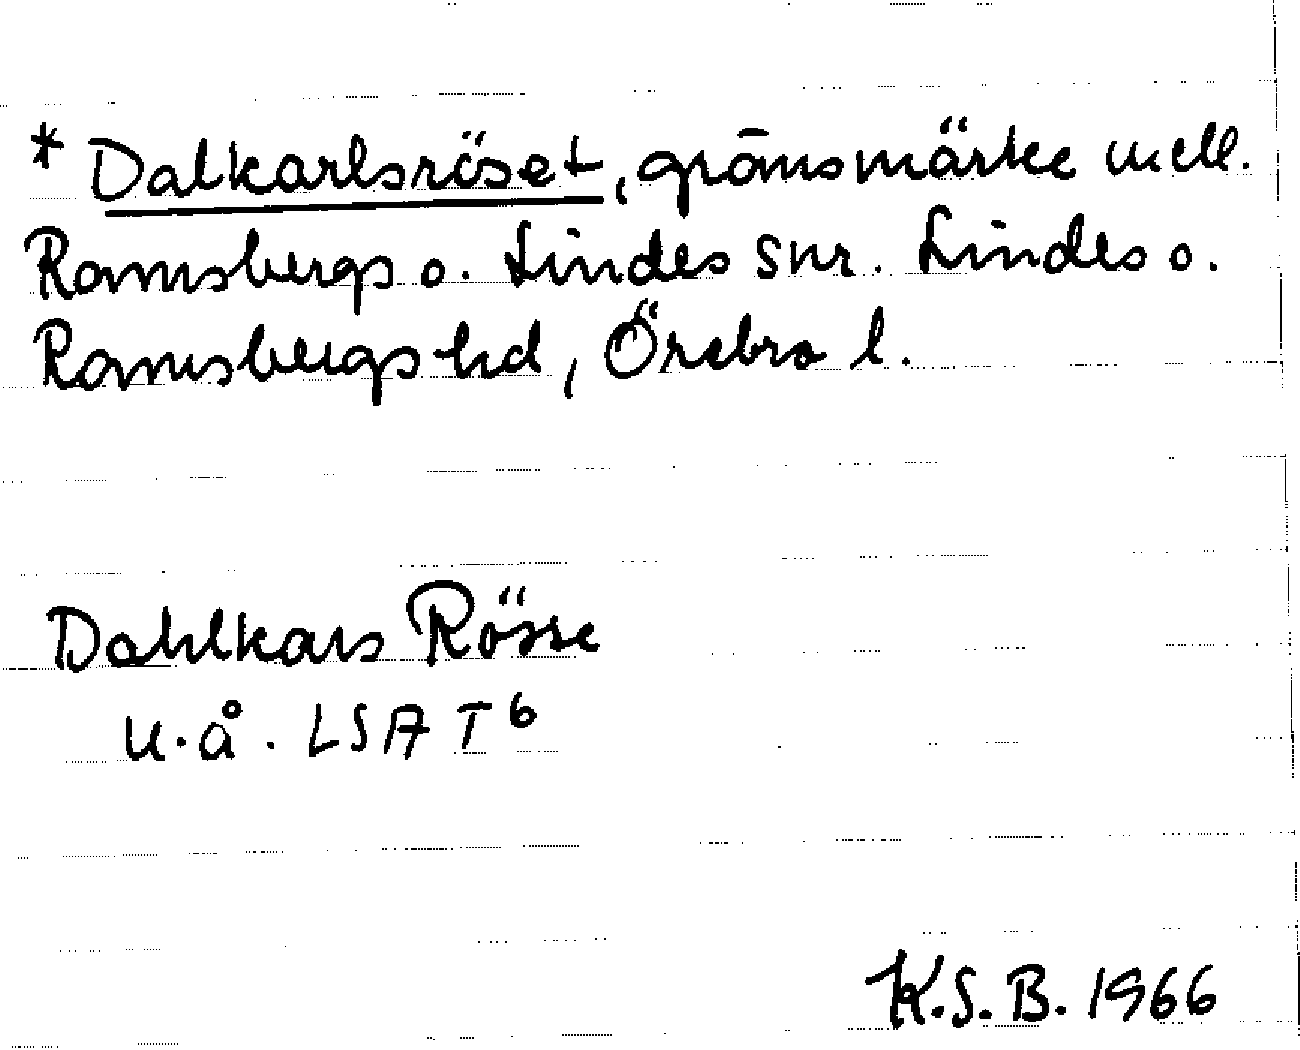 * Dalkarlsröset, gränsmärke mell.
Ramsbergs o. Lindes snr. Lindes o.
Ramsbergs hd, Örebro l.
Dahlkars Rösse
u.å. LSA T6
K.S.B. 1966